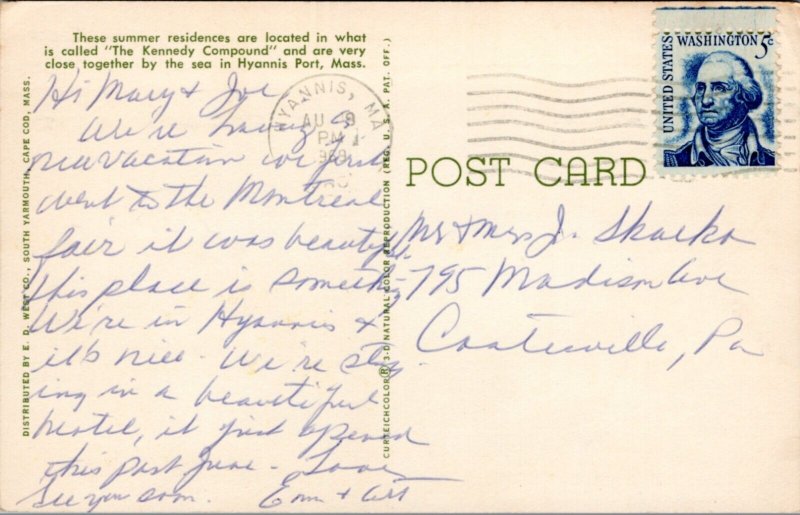 These summer residences are located in what
is called "The Kennedy Compound" and are very
close together by the sea in Hyannis Port, Mass.
Hi Mary & Joe
We're having a
nice vacation we just
went to the Montreal
fair it was beautiful
this place is something
We're in Hyannis &
it's nice. We're stay
ing in a beautiful
motel, it just opened
this past June. Love
See you soon. & Art
DISTRIBUTED BY E. D. WEST CO., SOUTH YARMOUTH, CAPE COD, MASS.
CURTEICHCOLOR® 3-D NATURAL COLOR REPRODUCTION (REG. U. S. A. PAT. OFF.)
HYANNIS, MA
AU
PM
POST CARD
UNITED STATES
WASHINGTON 5c
Mr & Mrs J. Skacka
795 Madison Ave
Coatesville, Pa